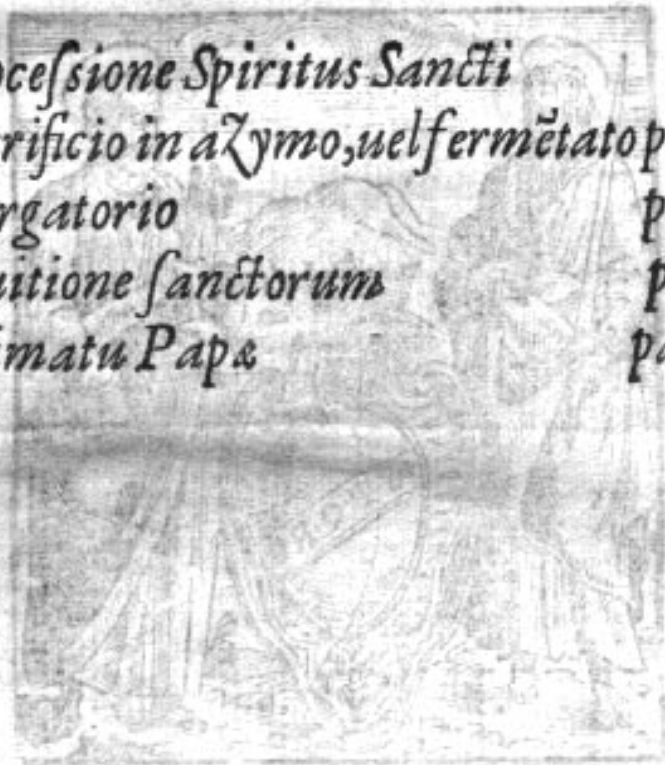 oceſsione Spiritus Sancti
rificio in azymo, uel fermẽtato p
rgatorio p
uitione ſanctorum p
imatu Papæ pa